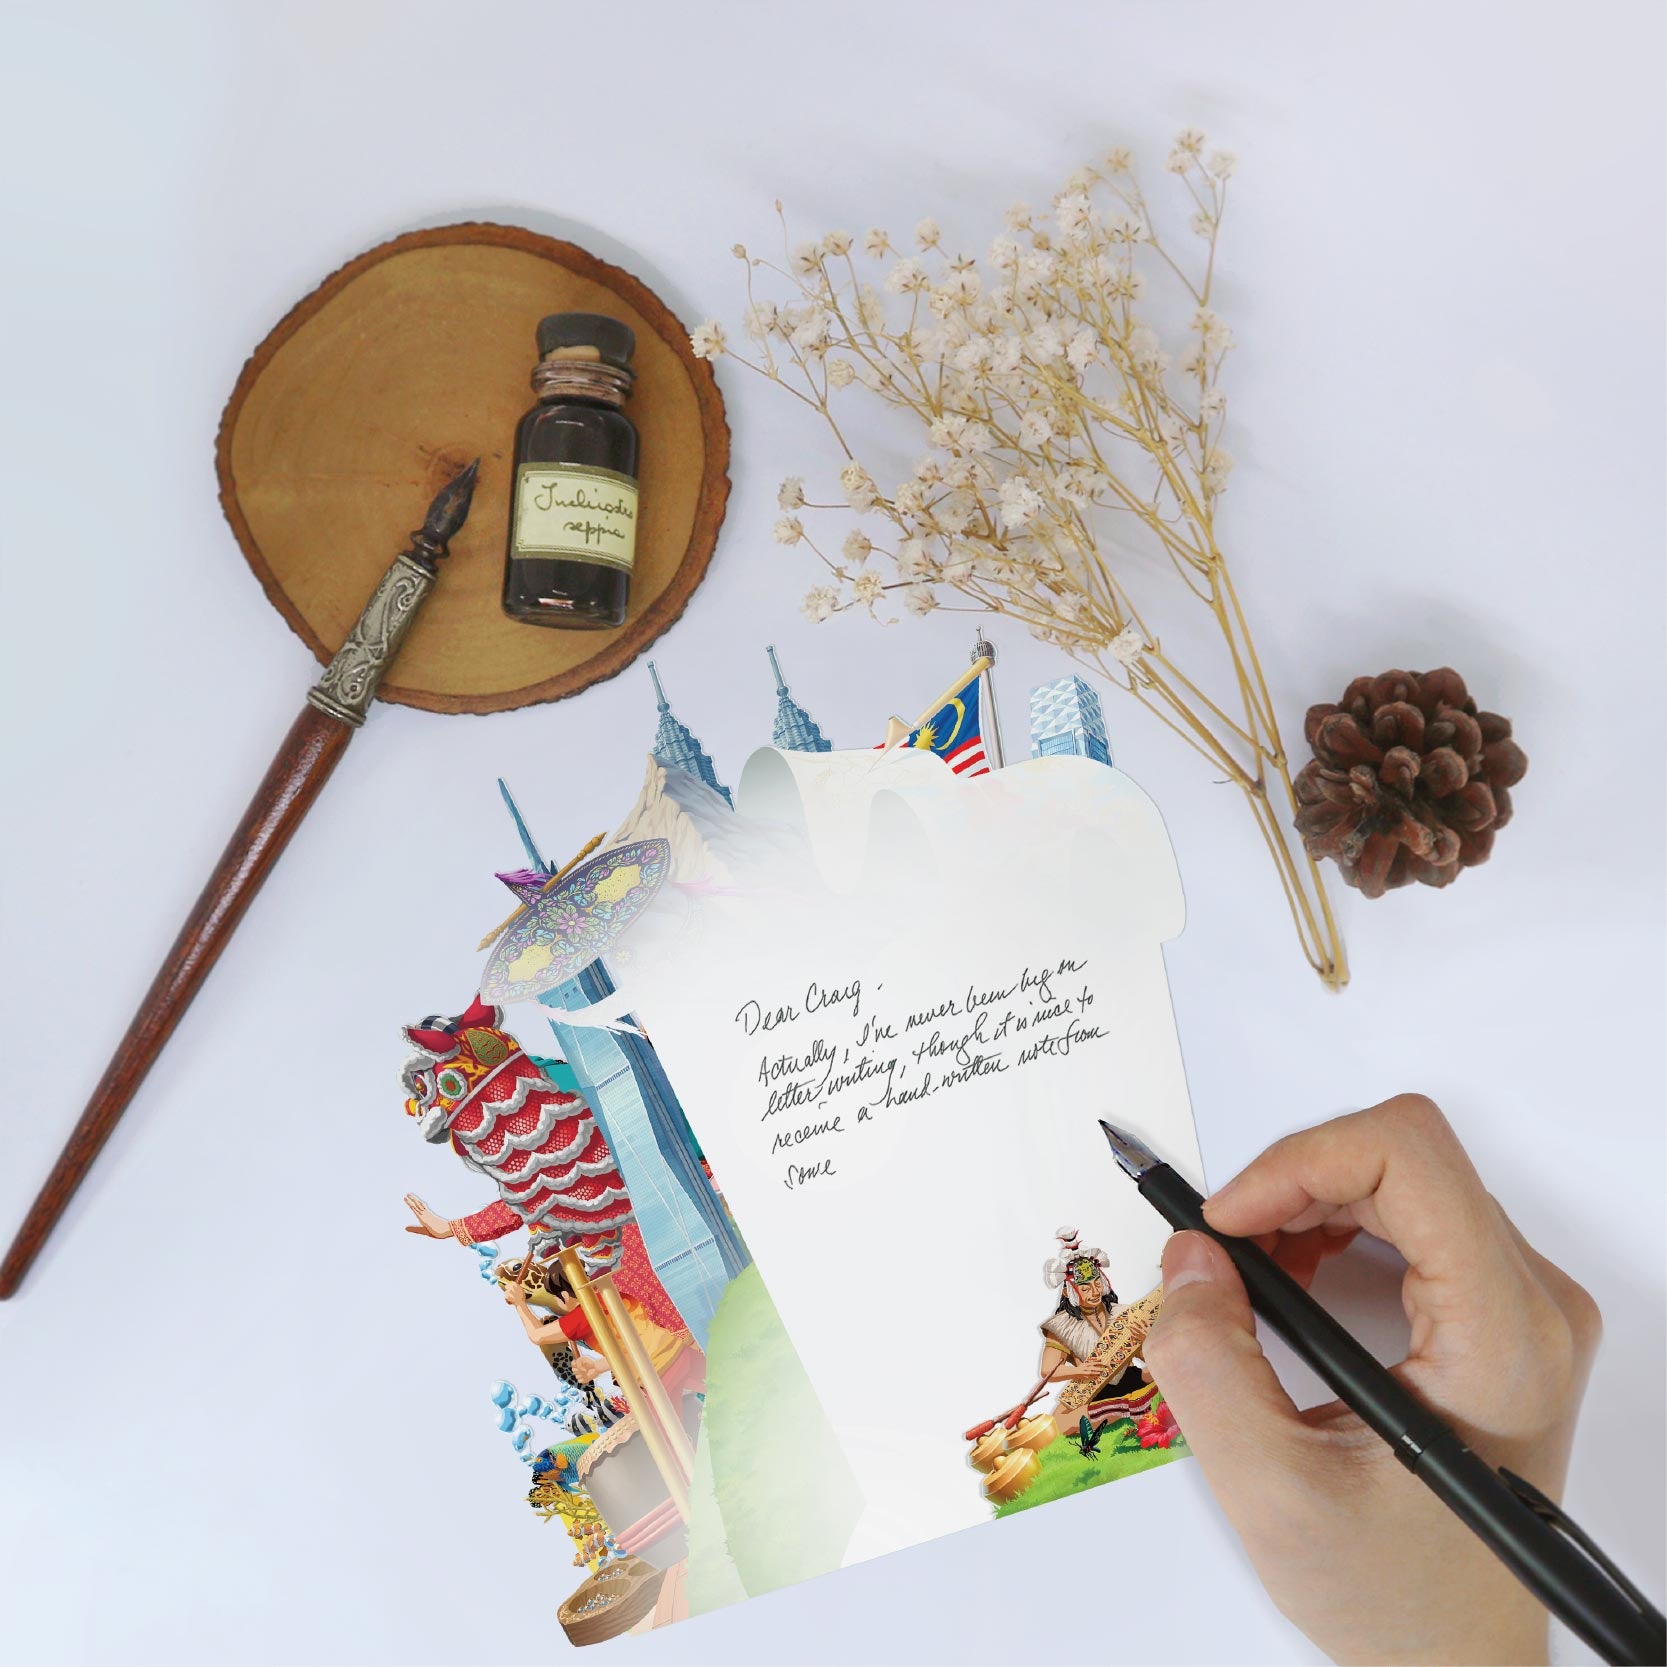 seppia
Dear Craig,
Actually, I've never been big on
letter-writing, though it is nice to
receive a hand-written note from
some